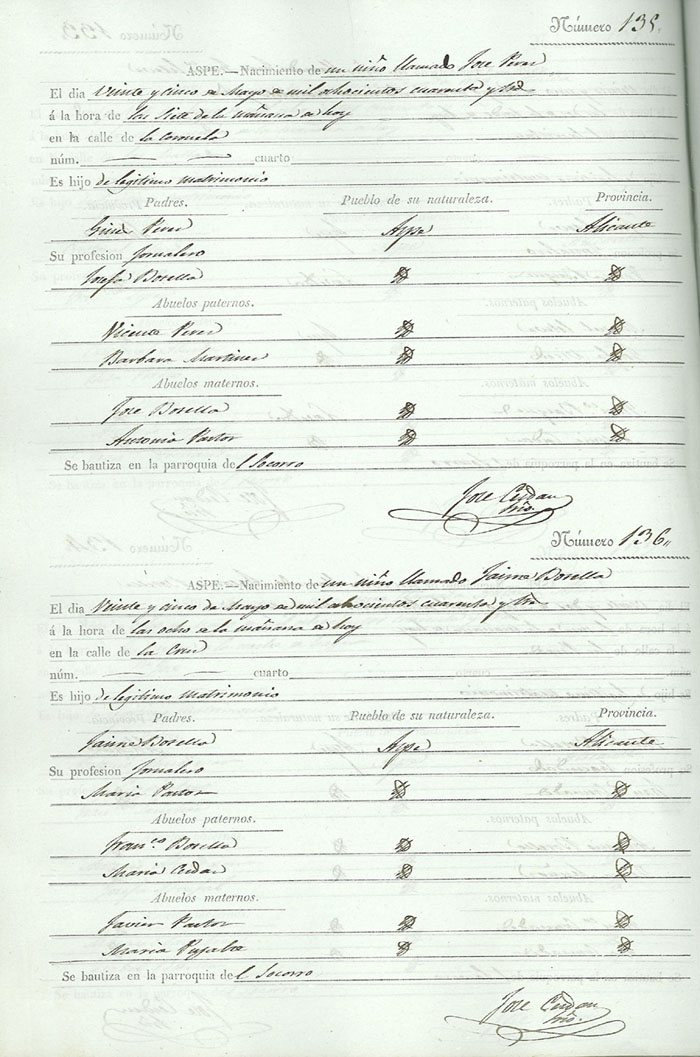 Número 135.
ASPE.—Nacimiento de un niño llamado Jose Perez
El dia Veinte y cinco de Mayo de mil ochocientos cuarenta y tres
á la hora de las Siete de la mañana de hoy
en la calle de la Coronela
núm. — — cuarto
Es hijo de legitimo matrimonio
Padres. Pueblo de su naturaleza. Provincia.
Gines Perez Aspe Alicante
Su profesion Jornalero
Josefa Botella
Abuelos paternos.
Vicente Perez
Barbara Martinez
Abuelos maternos.
Jose Botella
Antonia Pastor
Se bautiza en la parroquia del Socorro
Jose Cerdan
Srio.
Número 136
ASPE.—Nacimiento de un niño llamado Jaime Botella
El dia Veinte y cinco de Mayo de mil ochocientos cuarenta y tres
á la hora de las ocho de la mañana de hoy
en la calle de la Cruz
núm. — — cuarto
Es hijo de legitimo matrimonio
Padres. Pueblo de su naturaleza. Provincia.
Jaime Botella Aspe Alicante
Su profesion Jornalero
Maria Pastor
Abuelos paternos.
Fran.co Botella
Maria Cerdan
Abuelos maternos.
Javier Pastor
Maria Pujalte
Se bautiza en la parroquia del Socorro
Jose Cerdan
Srio.